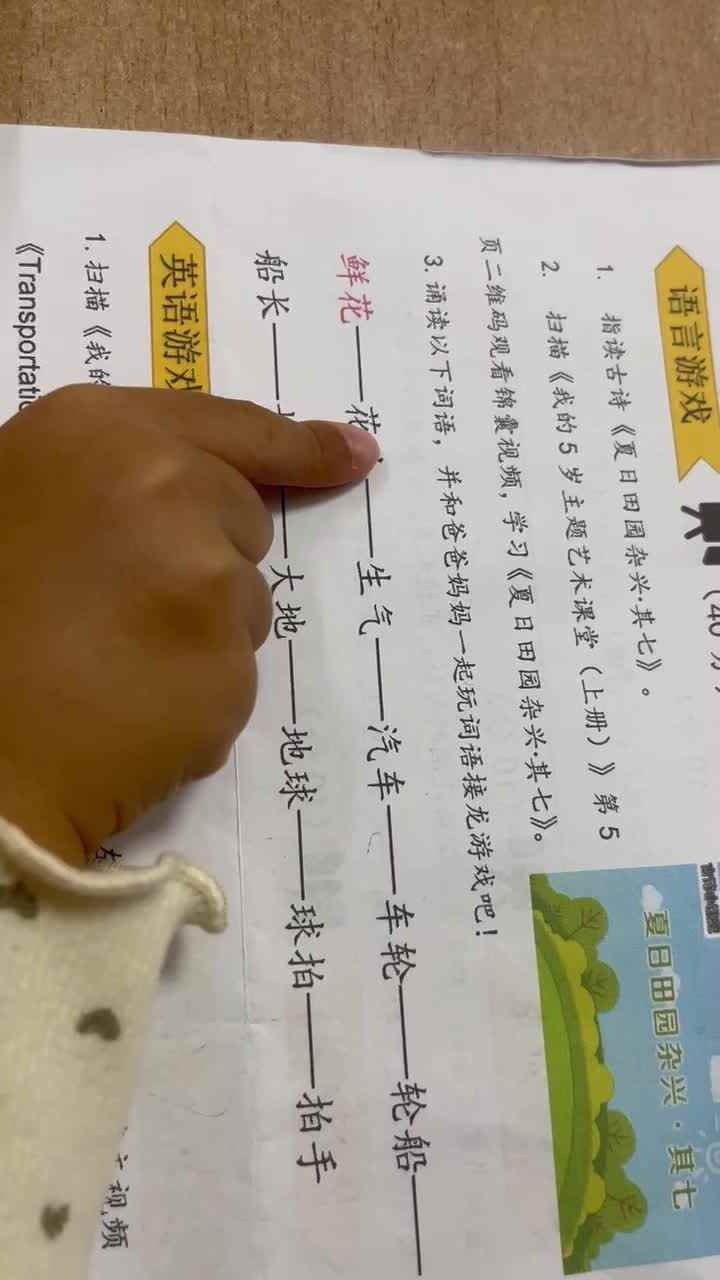 语言游戏
1. 指读古诗《夏日田园杂兴·其七》。
2. 扫描《我的5岁主题艺术课堂(上册)》第5
页二维码观看锦囊视频,学习《夏日田园杂兴·其七》。
3. 诵读以下词语,并和爸爸妈妈一起玩词语接龙游戏吧!
鲜花——花——生气——汽车——车轮——轮船——
船长——大地——地球——球拍——拍手
夏日田园杂兴·其七
英语游戏
1. 扫描《我的
视频
《Transportatio